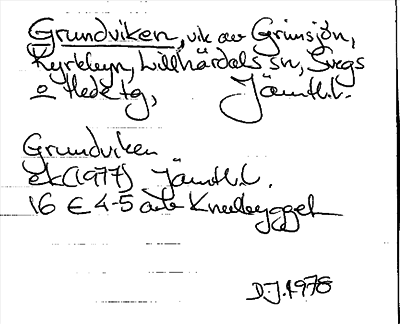 Grundviken, vik av Grimsjön,
Kyrkbyn, Lillhärdals sn, Svegs
o Hede tg, Jämtl.l.
Grundviken
ek (1977) Jämtl.l.
16 E 4-5 a-b
D.J. 1978